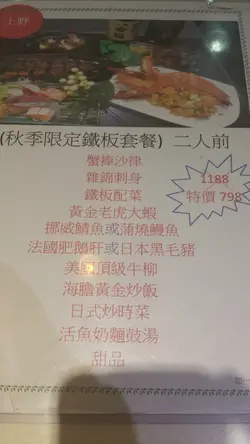 上野
(秋季限定鐵板套餐) 二人前
蟹捧沙律
雜錦刺身
1188
特價 798
鐵板配菜
黃金老虎大蝦
挪威鯖魚或蒲燒鰻魚
法國肥鵝肝或日本黑毛豬
美國頂級牛柳
海膽黃金炒飯
日式炒時菜
活魚奶麵鼓湯
甜品